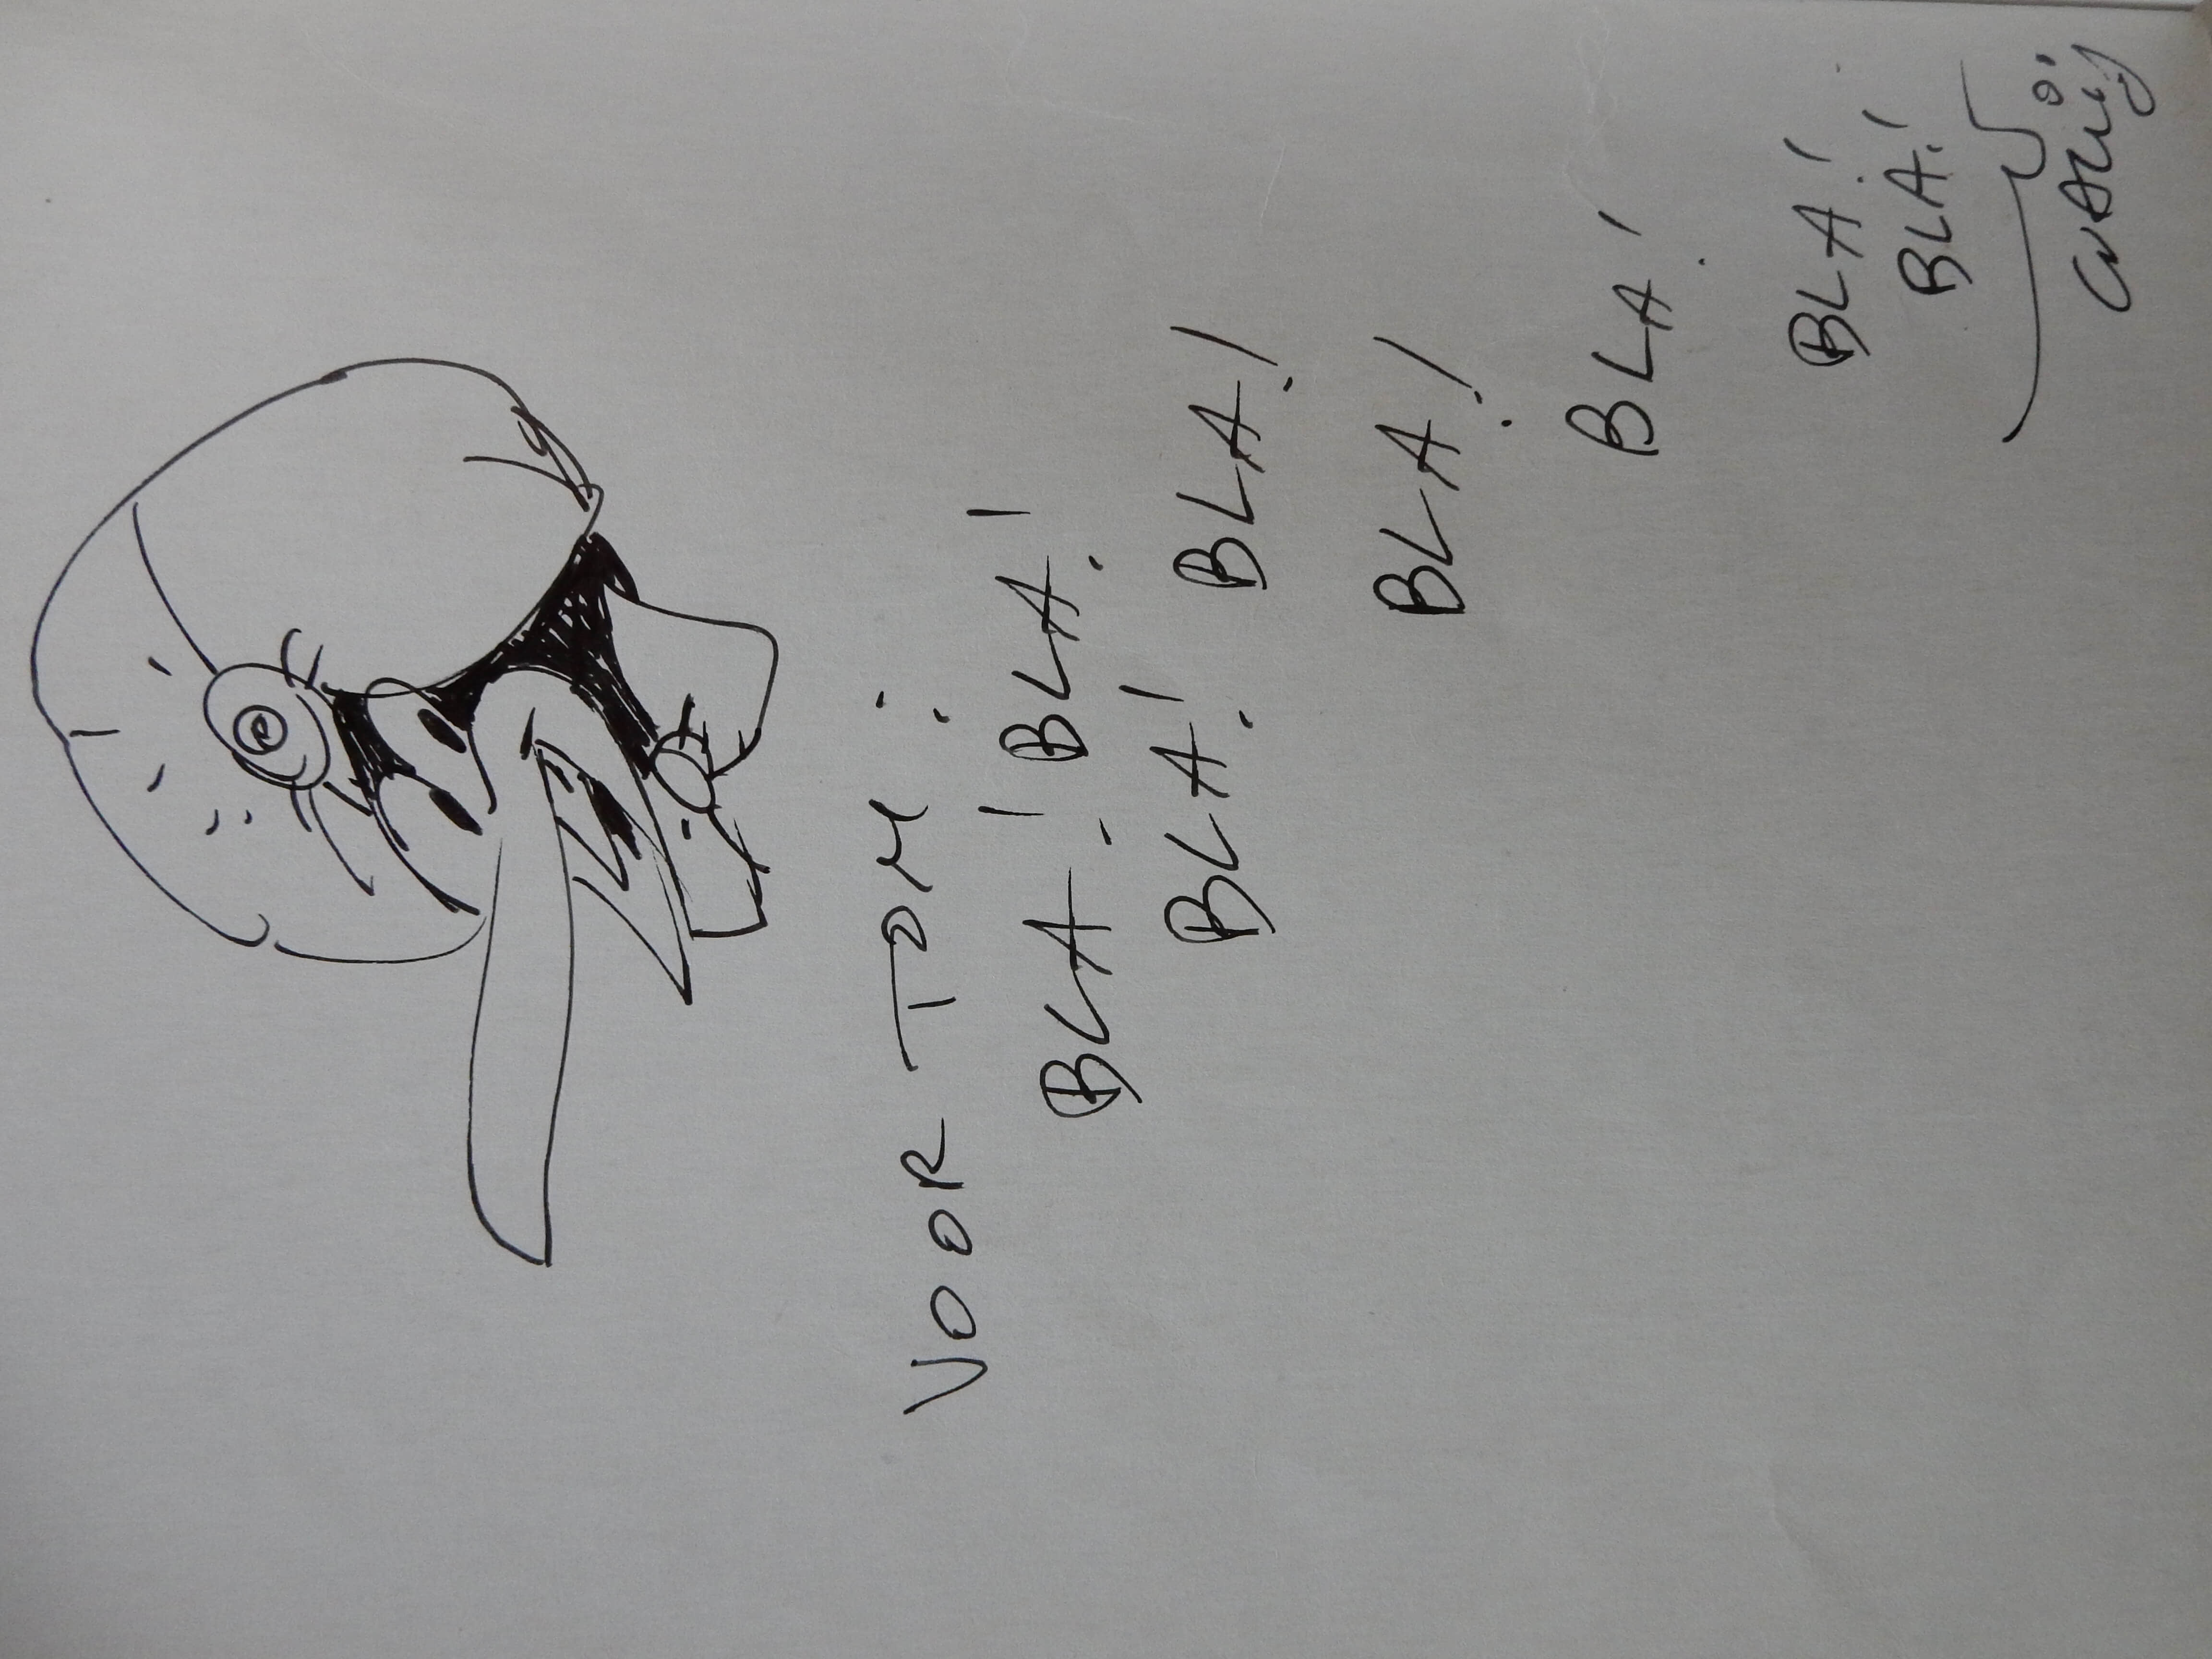 VOOR TOM :
BLA! BLA!
BLA! BLA!
BLA!
BLA!
BLA!
BLA!